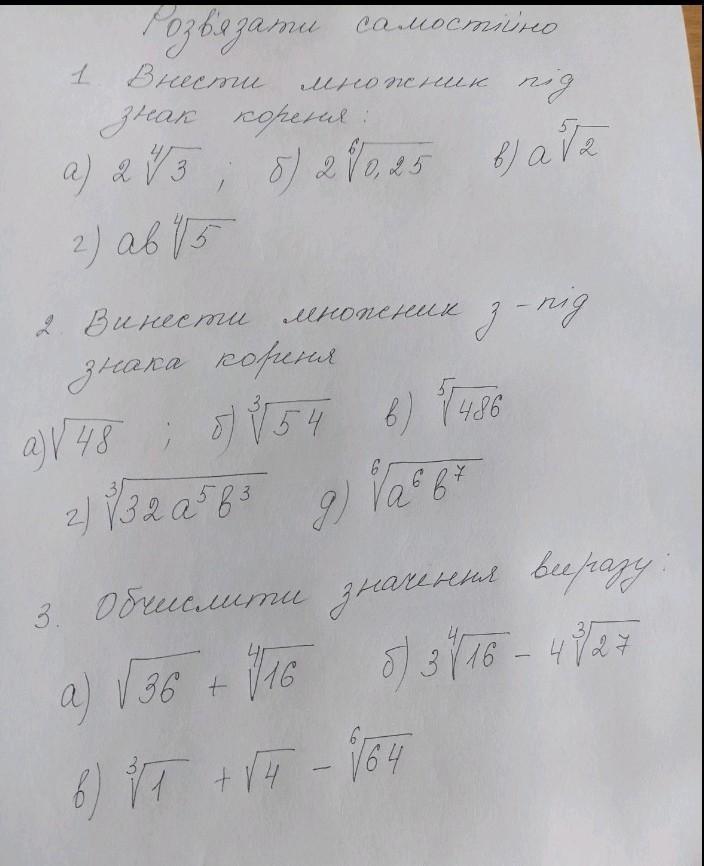 Розв'язати самостійно
1. Внести множник під
знак кореня:
а) 2⁴√3 ; б) 2⁶√0,25 в) a⁵√2
г) ab⁴√5
2. Винести множник з-під
знака кореня
а) √48 ; б) ³√54 в) ⁵√486
г) ³√32a⁵b³ д) ⁶√a⁶b⁷
3. Обчислити значення виразу:
а) √36 + ⁴√16 б) 3⁴√16 - 4³√27
в) ³√1 + √4 - ⁶√64